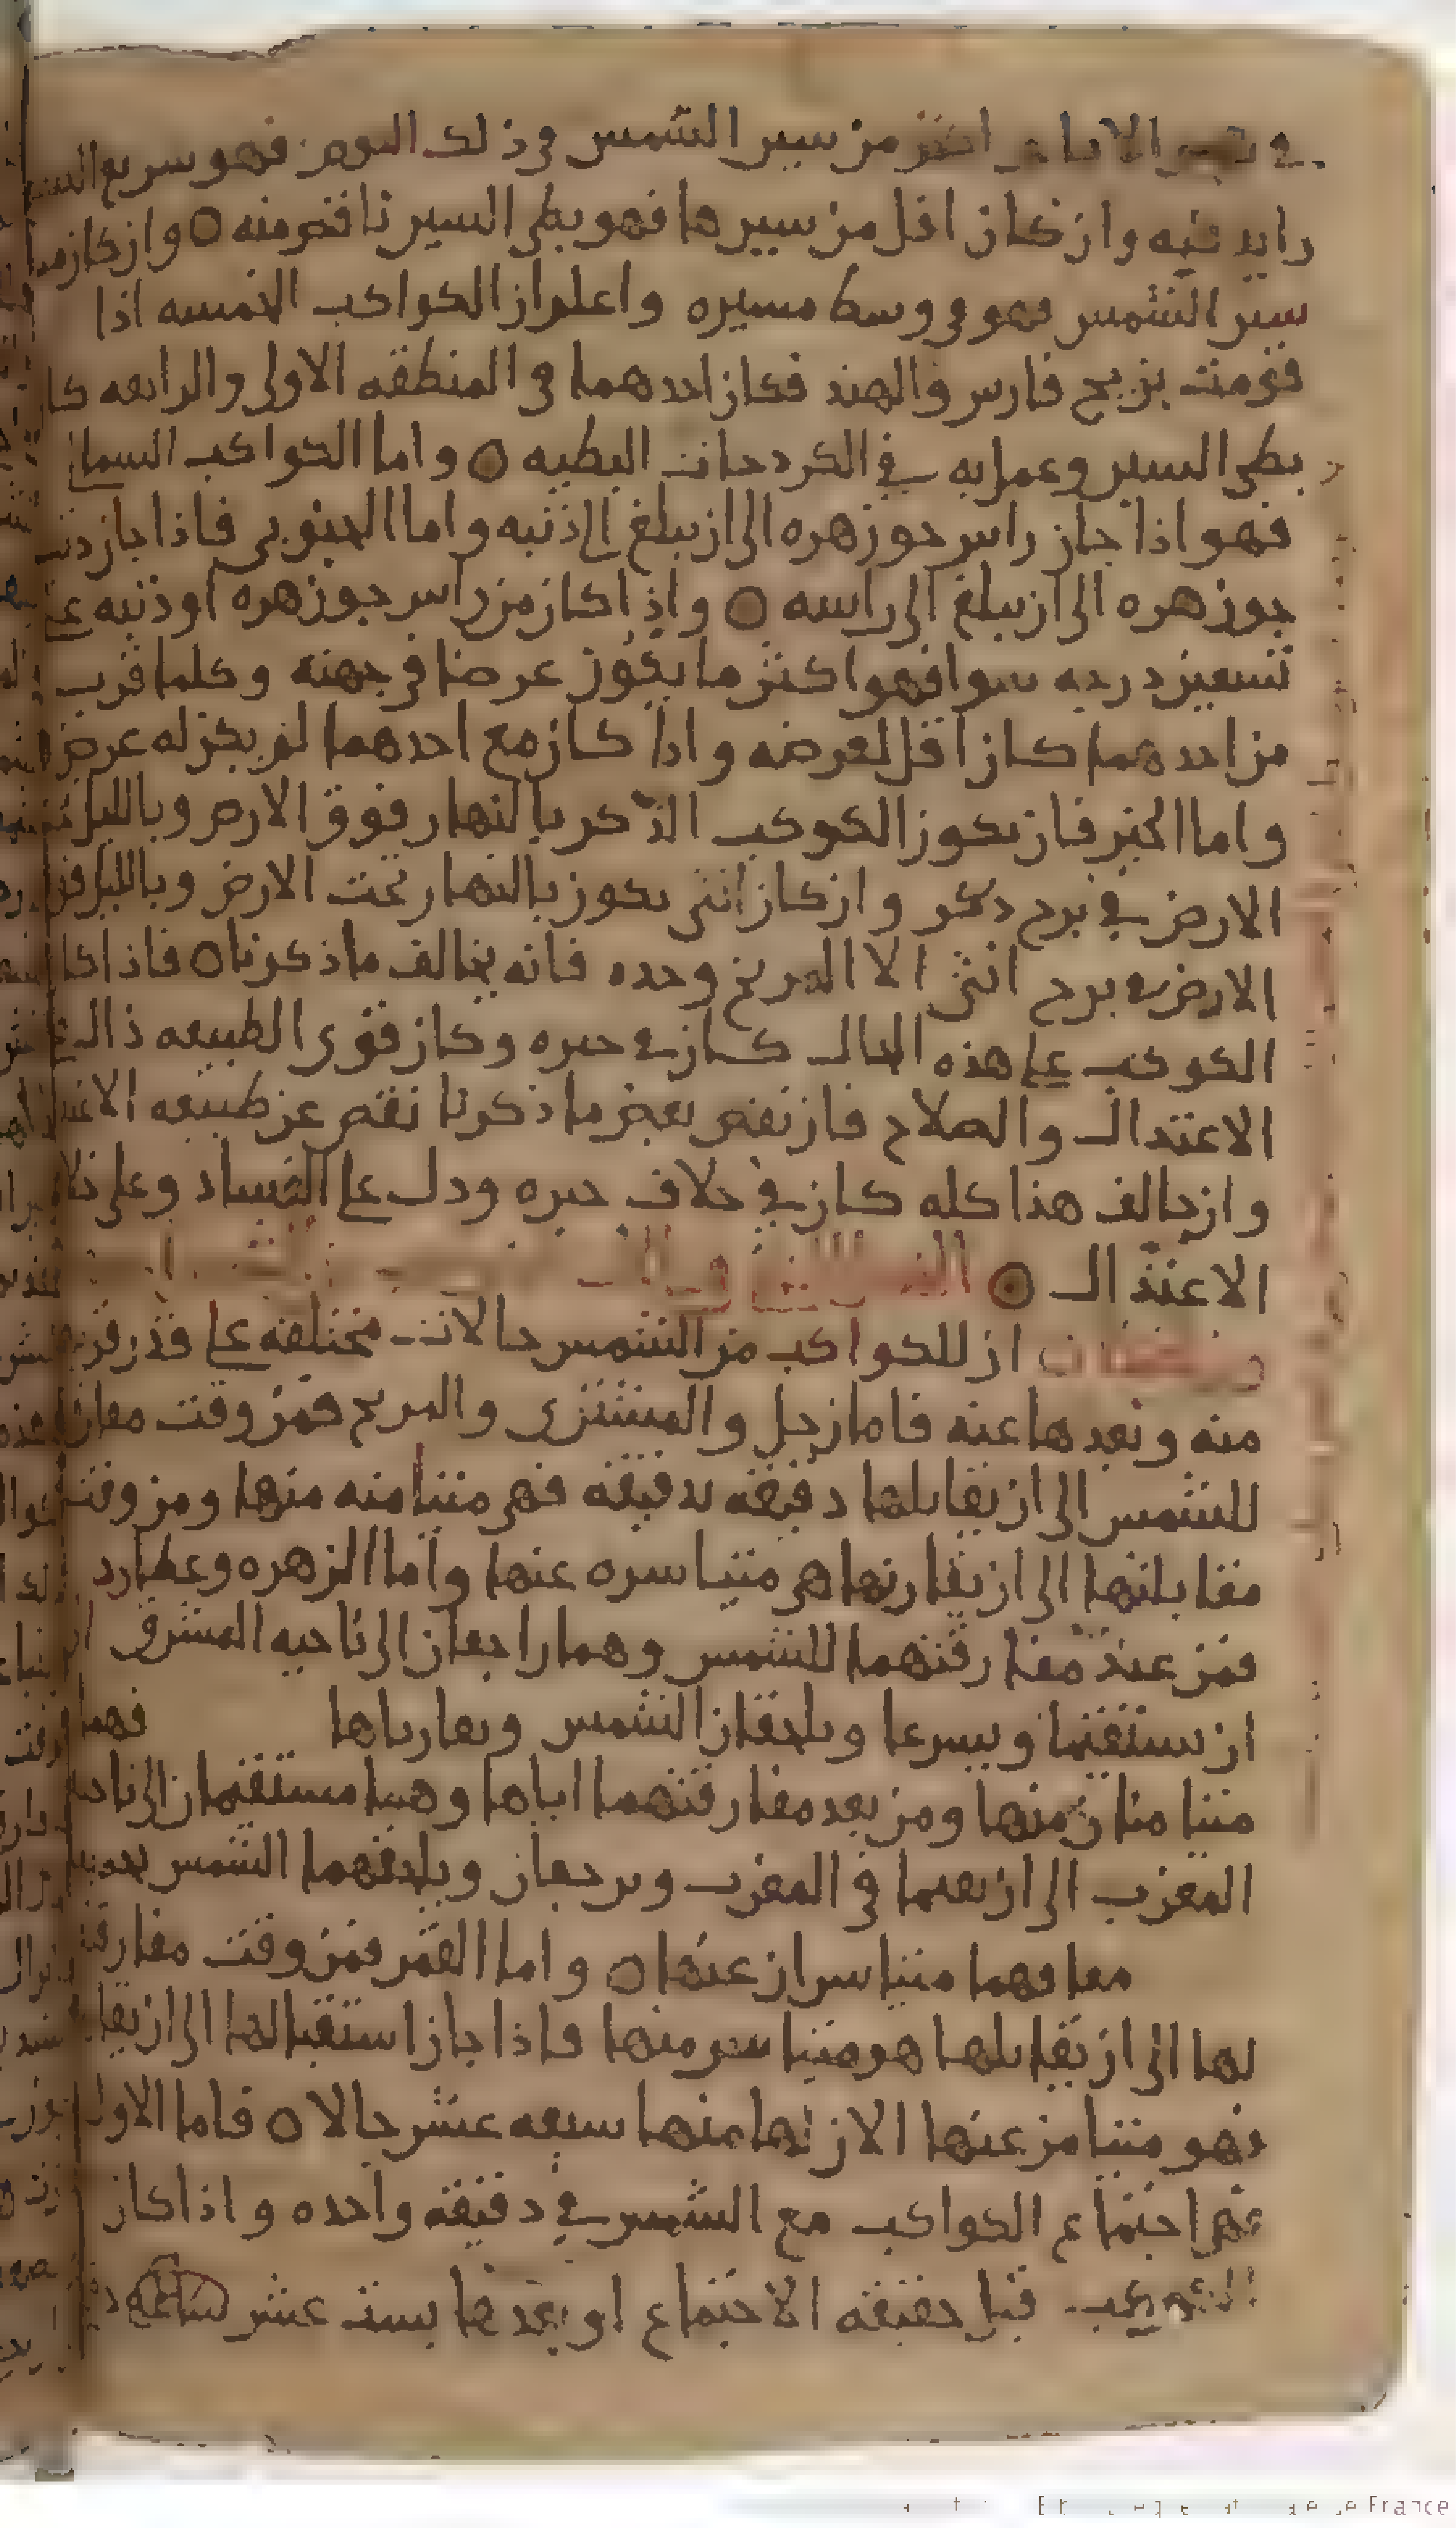 في الايام اكثر من سير الشمس في ذلك اليوم فهو سريع السير
زايد فيه وان كان اقل من سيرها فهو بطي السير ناقص منه ○ وان كان مثل
سير الشمس فهو في وسط مسيره واعلم ان الكواكب الخمسه اذا
قومت بزيج فارس والهند فكان احدهما في المنطقه الاولى والرابعه كان
بطي السير وعمل به في الكردجات البطيه ○ واما الكواكب السمالي
فهو اذا جاز راس جوزهره الى ان يبلغ الى ذنبه واما الجنوبي فاذا جاز ذنب
جوزهره الى ان يبلغ الى راسه ○ واذا كان من راس جوزهره او ذنبه على
تسعين درجه سوا فهو اكثر ما يكون عرضا في جهته وكلما قرب
من احدهما كان اقل لعرضه واذا كان مع احدهما لم يكن له عرض
واما الحيز فان يكون الكوكب الذكر بالنهار فوق الارض وبالليل تحت
الارض في برج ذكر وان كان انثى يكون بالنهار تحت الارض وبالليل فوق
الارض في برج انثى الا المريخ وحده فانه يخالف ما ذكرنا ○ فاذا كان
الكوكب على هذه الحال كان في حيزه وكان قوي الطبيعه دال على
الاعتدال والصلاح فان نقص بعض ما ذكرنا نقص عن طبيعه الاعتدال
وان خالف هذا كله كان في خلاف حيزه ودل على الفساد وعلى خلاف
الاعتدال ○ الفصل
ان للكواكب من الشمس حالات مختلفه على قدر قربها
منه وبعدها عنه فاما زحل والمشتري والمريخ فمن وقت مفارقتها
للشمس الى ان يقابلها دقيقه بدقيقه فهي متيامنه منها ومن وقت
مقابلتها الى ان يقارنها هي متياسره عنها واما الزهره وعطارد
فمن عند مفارقتهما للشمس وهما راجعان الى ناحيه المشرق الى
ان يستقيما ويسرعا ويلحقان الشمس ويقارناها فهما
متيامنان منها ومن بعد مفارقتهما اياها وهما مستقيمان الى ناحيه
المغرب الى ان يقيما في المغرب ويرجعان ويلحقهما الشمس
معا فهما متياسران عنها ○ واما القمر فمن وقت مفارقته
لها الى ان يقابلها هو متياسر منها فاذا جاز استقبالها الى ان يقارنها
فهو متيامن عنها الا ان لها منها سبعه عشر حالا ○ فاما الاول
فهي اجتماع الكواكب مع الشمس في دقيقه واحده واذا كان
الكوكب قبل حقيقه الاجتماع او بعدها بست عشر